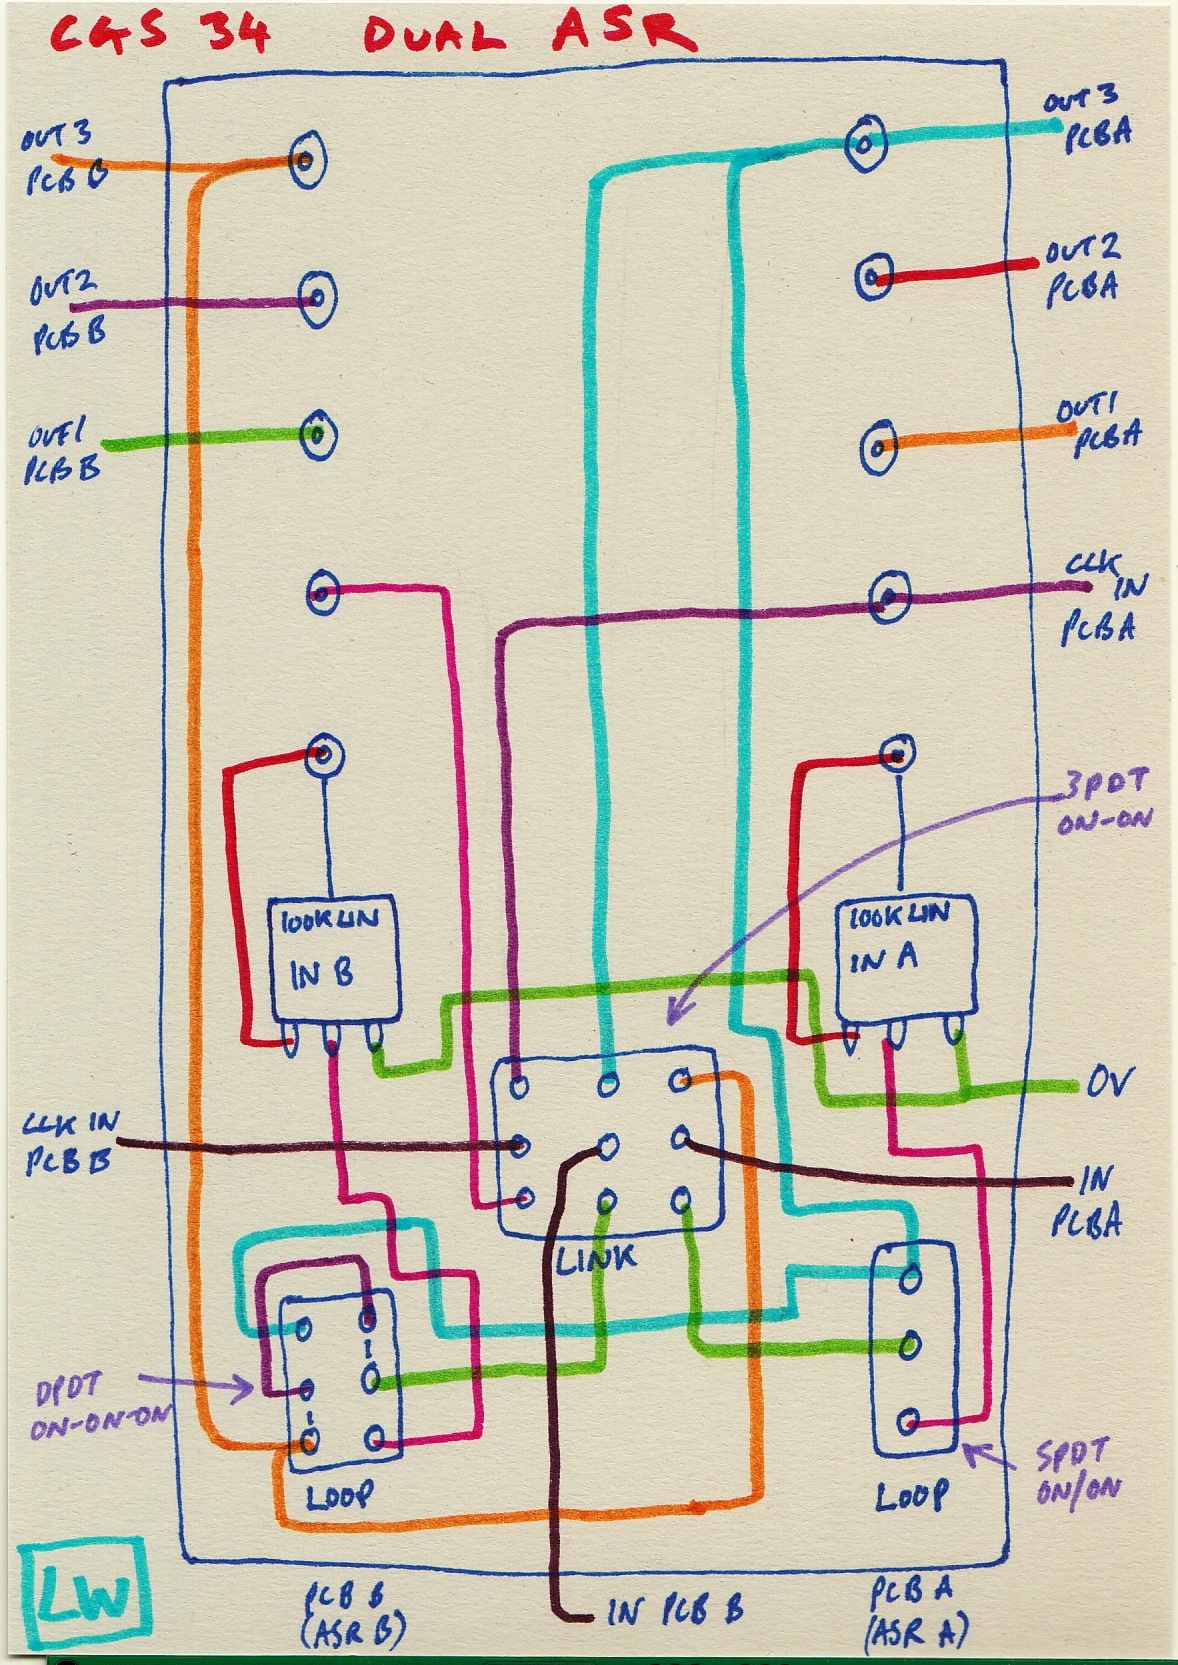 CGS 34 DUAL ASR
OUT 3
PCB B
OUT 3
PCB A
OUT 2
PCB B
OUT 2
PCB A
OUT 1
PCB B
OUT 1
PCB A
CLK
IN
PCB A
3PDT
ON-ON
100K LIN
IN B
100K LIN
IN A
0V
CLK IN
PCB B
IN
PCB A
LINK
DPDT
ON-ON-ON
SPDT
ON/ON
LOOP
LOOP
LW
PCB B
(ASR B)
IN PCB B
PCB A
(ASR A)